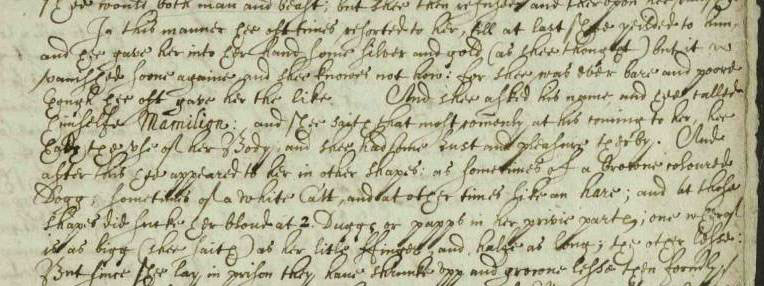 would both man and beast; but shee then refused and therupon hee
In this manner hee oft times resorted to her, till at last shee yeilded to him
and hee gave her into her hand some silver and gold (as shee thought) but it
vanished soone againe and shee knowes not how: for shee was ever bare and poore
though hee oft gave her the like. And shee asked his name, and hee called
himselfe Mamilion: and shee saith that most comenly at his coming to her, hee
had the use of her Body, and shee had some lust and pleasure therby. And
after this hee appeared to her in other shapes: as sometimes of a browne coloured
Dogg, sometimes of a white Catt, and at other times like an hare; and at those
shapes did sucke her bloud at 2. Duggs or papps in her privie parts; one wherof
is as bigg (shee saith) as her little finger, and halfe as long; the other lesse:
But since shee lay in prison they have shrunke upp and growne lesse then formerly